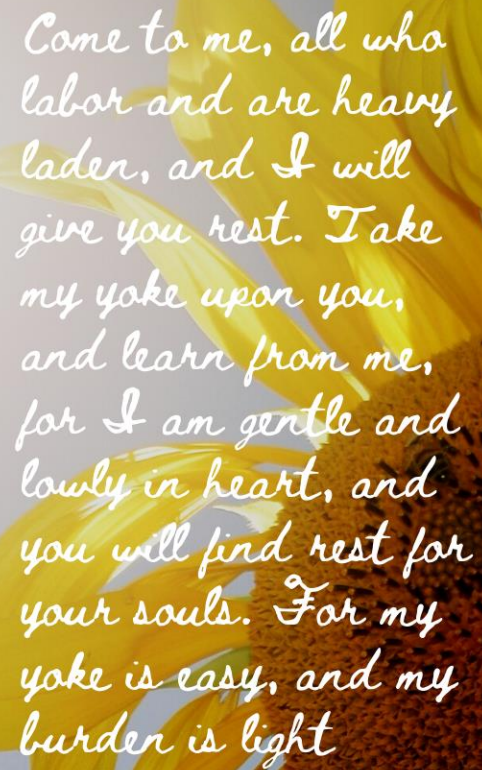 Come to me, all who
labor and are heavy
laden, and I will
give you rest. Take
my yoke upon you,
and learn from me,
for I am gentle and
lowly in heart, and
you will find rest for
your souls. For my
yoke is easy, and my
burden is light